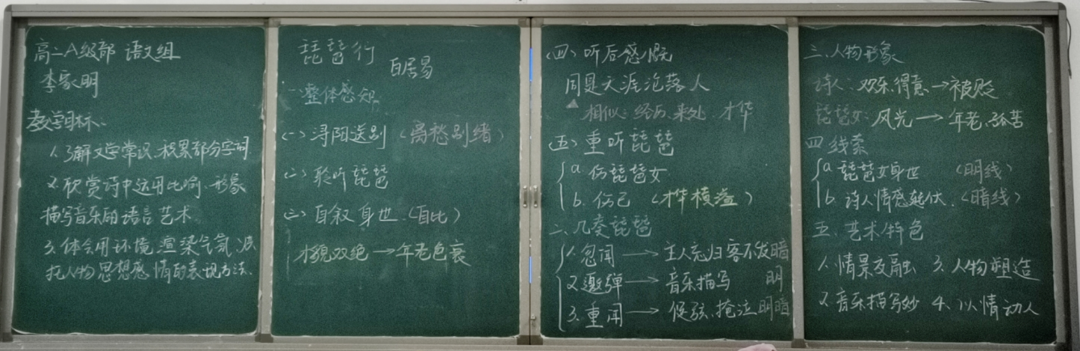 高二A级部 语文组
李家明
教学目标:
1.了解文学常识.积累部分字词
2.欣赏诗中运用比喻.形象
描写音乐的语言艺术.
3.体会用环境渲染气氛.
托人物思想感情的表现方法.
琵琶行
白居易
一.整体感知
(一)浔阳送别(离愁别绪)
(二)聆听琵琶
(三)自叙身世(自比)
才貌双绝→年老色衰
(四)听后感慨
同是天涯沦落人
相似:经历.来处.才华
(五)重听琵琶
a.伤琵琶女
b.伤己(才华横溢)
二、几交琵琶
1.忽闻→主人忘归客不发 暗
2.邀弹→音乐描写 明
3.重闻→促弦.掩泣 明暗
三.人物形象
诗人:欢乐.得意→被贬
琵琶女:风光→年老.孤苦
四.线索
a.琵琶女身世(明线)
b.诗人情感转伏(暗线)
五.艺术特色
1.情景交融 3.人物塑造
2.音乐描写妙 4.以情动人